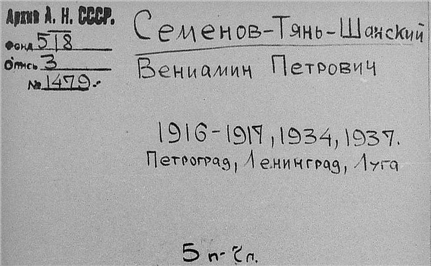 Архив А. Н. СССР.
Фонд 518
Опись 3
№ 1479.-
Семенов-Тянь-Шанский
Вениамин Петрович
1916-1917, 1934, 1937.
Петроград, Ленинград, Луга
5 п-